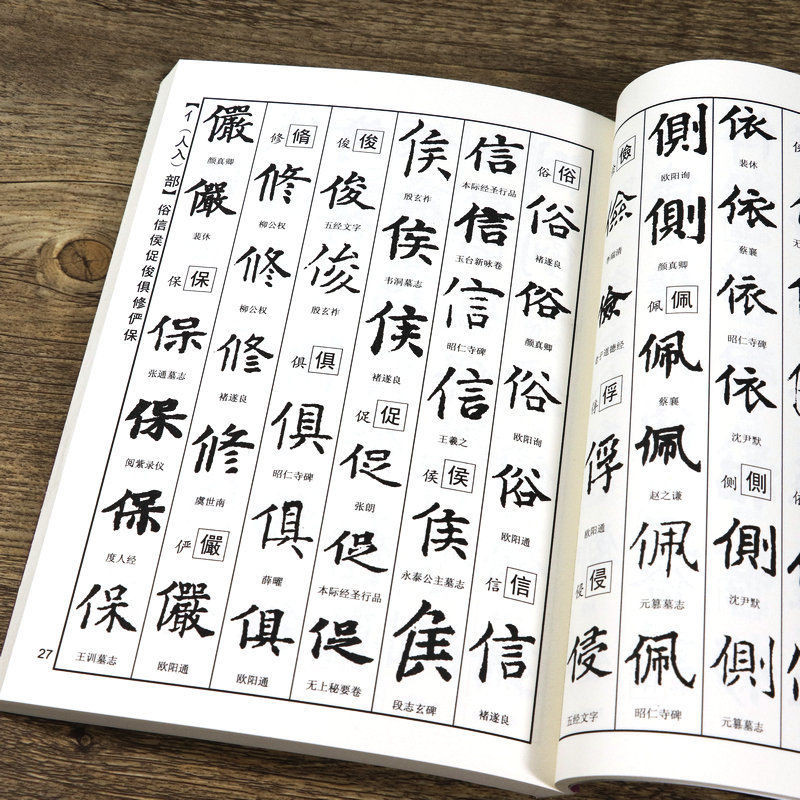 【亻（人入）部】俗信侯促俊俱修俨保
俗 俗
俗
褚遂良
俗
颜真卿
俗
欧阳询
俗
欧阳通
信 信
信
褚遂良
信
本际经圣行品
信
玉台新咏卷
信
昭仁寺碑
信
王羲之
侯 侯
侯
永泰公主墓志
侯
段志玄碑
侯
殷玄祚
侯
韦洞墓志
侯
褚遂良
促 促
促
张朗
促
本际经圣行品
促
无上秘要卷
俊 俊
俊
五经文字
俊
殷玄祚
俱 俱
俱
昭仁寺碑
俱
薛曜
俱
欧阳通
修 脩
修
柳公权
修
柳公权
修
褚遂良
修
虞世南
俨 儼
儼
欧阳通
儼
颜真卿
儼
裴休
保 保
保
张通墓志
保
阅紫录仪
保
度人经
保
王训墓志
27
依
裴休
依
蔡襄
依
昭仁寺碑
依
沈尹默
侧 側
側
沈尹默
側
元篡墓志
側
欧阳询
側
颜真卿
佩 佩
佩
蔡襄
佩
赵之谦
佩
元篡墓志
佩
昭仁寺碑
儉
俘 俘
俘
欧阳通
侵 侵
侵
五经文字